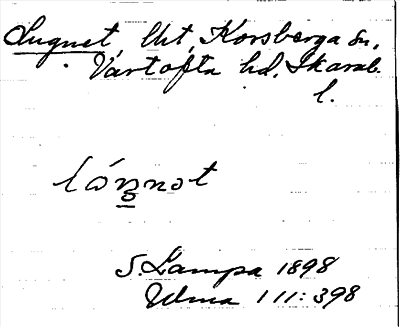 Lugnet, lht, Korsberga sn,
Vartofta hd, Skarab.
l.
lóꞥnət
S. Lampa 1898
Ulma 111:398